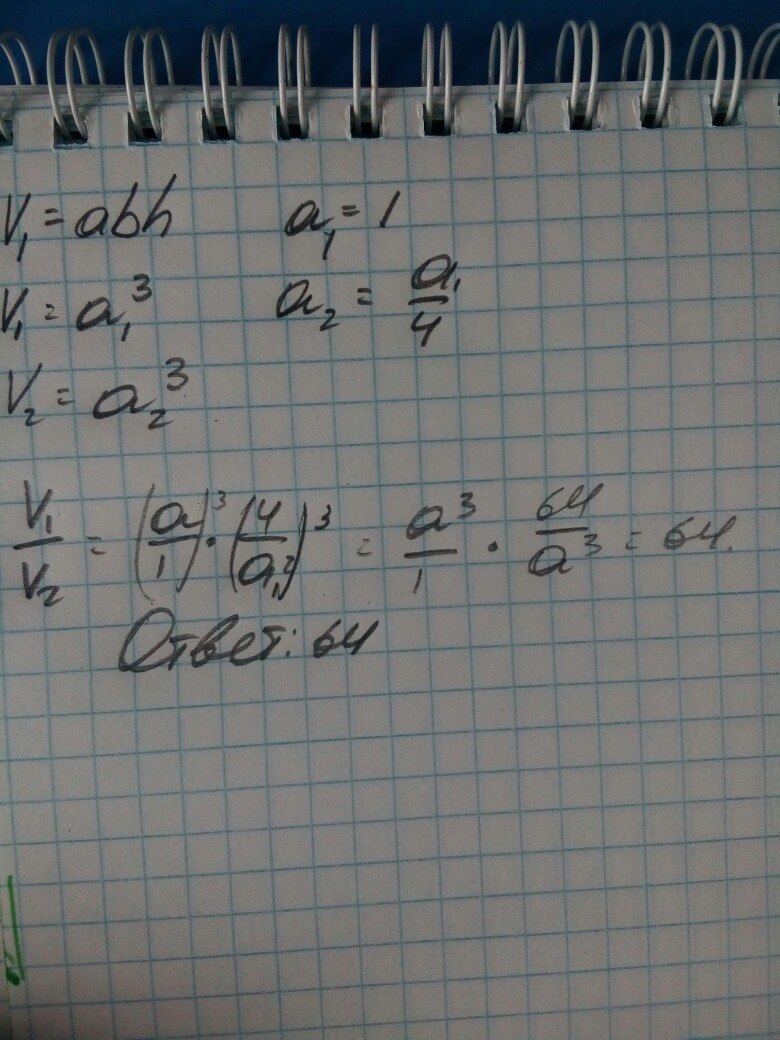 V₁ = abh a₁ = 1
V₁ = a₁³ a₂ = a₁/4
V₂ = a₂³
V₁/V₂ = (a/1)³ · (4/a₁)³ = a³/1 · 64/a³ = 64.
Ответ: 64